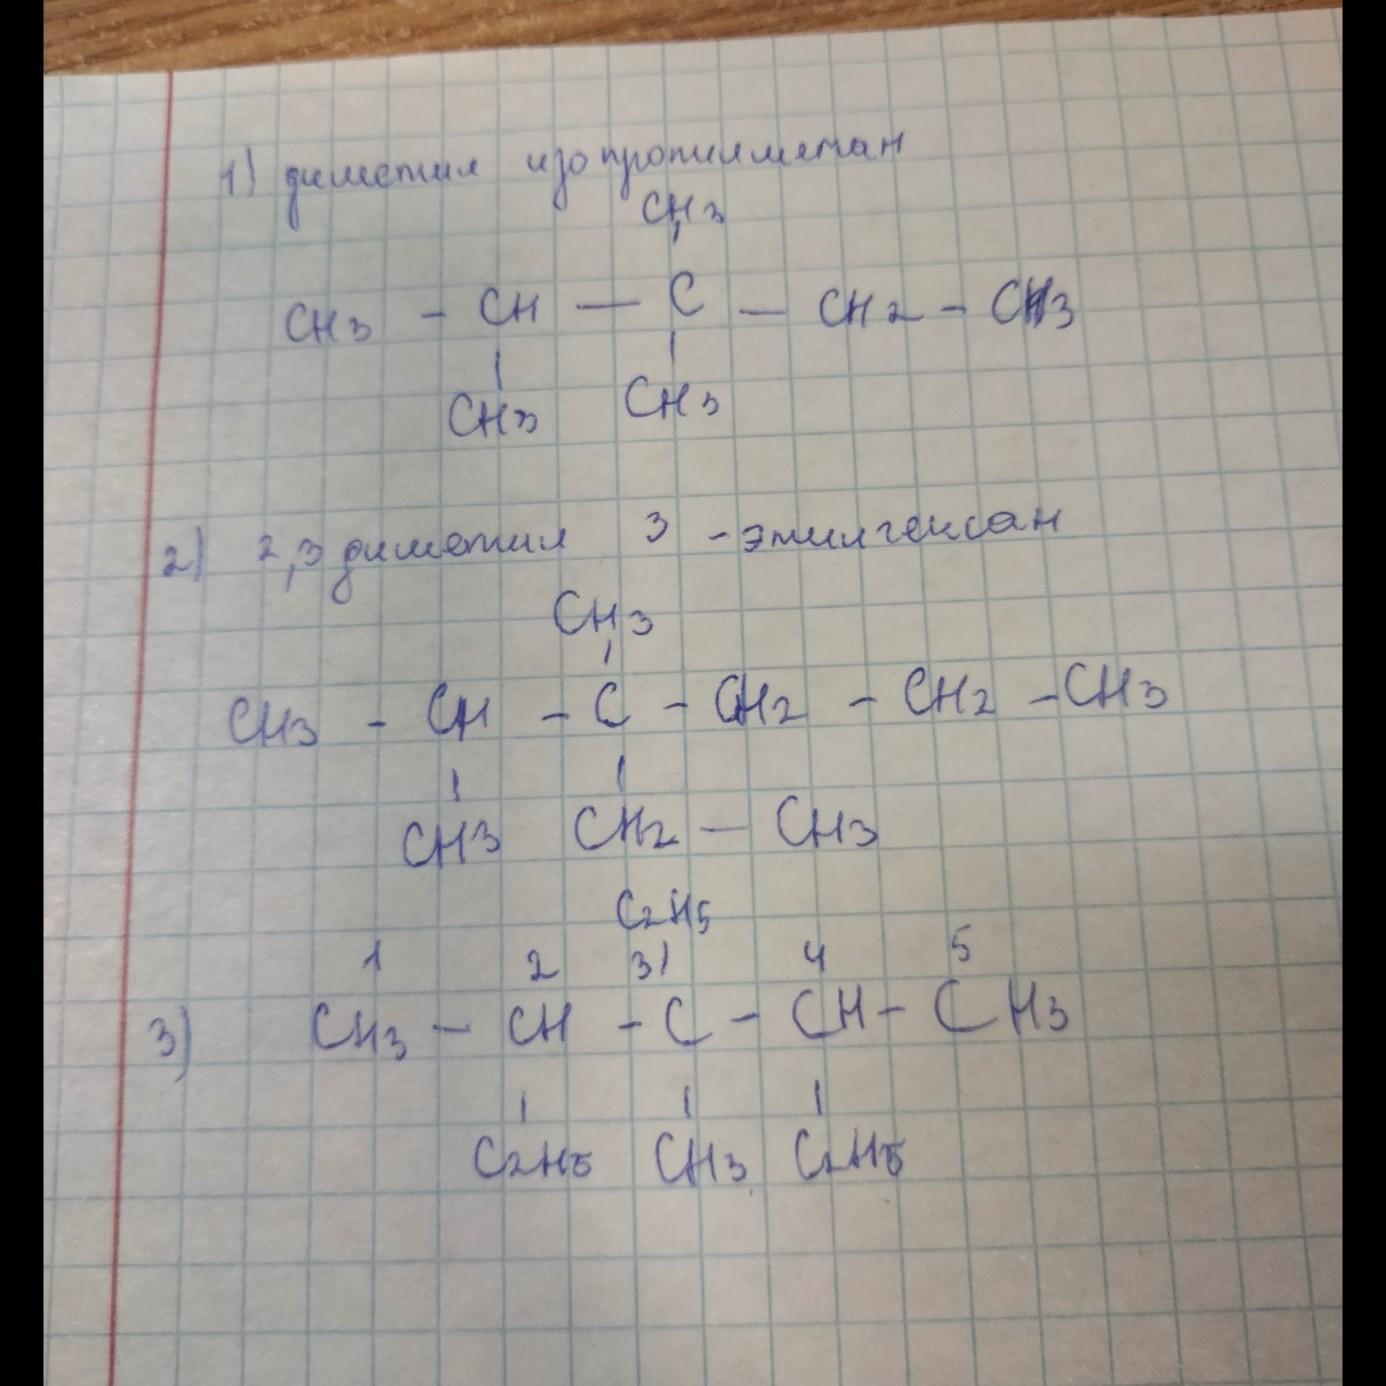 1) диметил изопропилметан
CH3
CH3 - CH — C — CH2 - CH3
CH3 CH3
2) 2,3 диметил 3 - этилгексан
CH3
CH3 - CH - C - CH2 - CH2 - CH3
CH3 CH2 — CH3
C2H5
1 2 3 4 5
3) CH3 - CH - C - CH - CH3
C2H5 CH3 C2H5